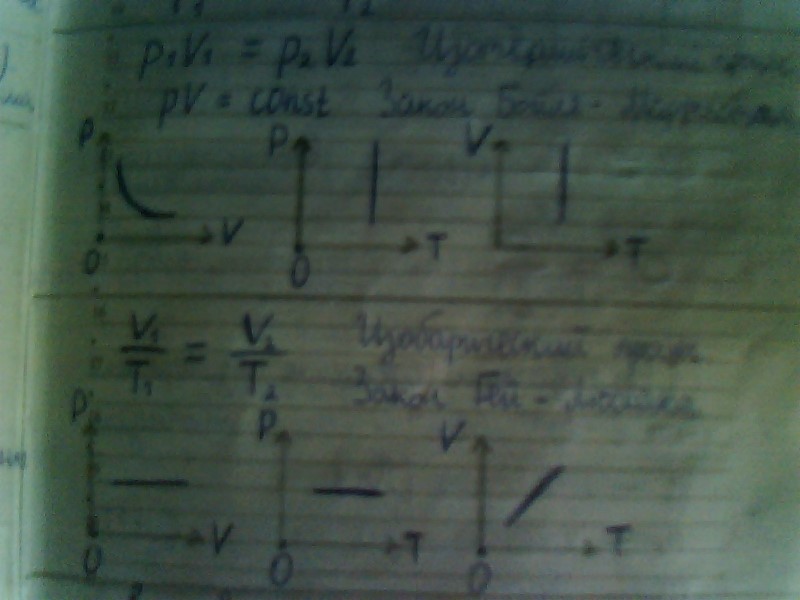 T₁ T₂
p₁V₁ = p₂V₂ Изотермический
pV = const Закон Бойля - Мариотта
P V O
P T O
V T
V₁/T₁ = V₂/T₂ Изобарический проц.
Закон Гей - Люссака
P V O
P T O
V T O